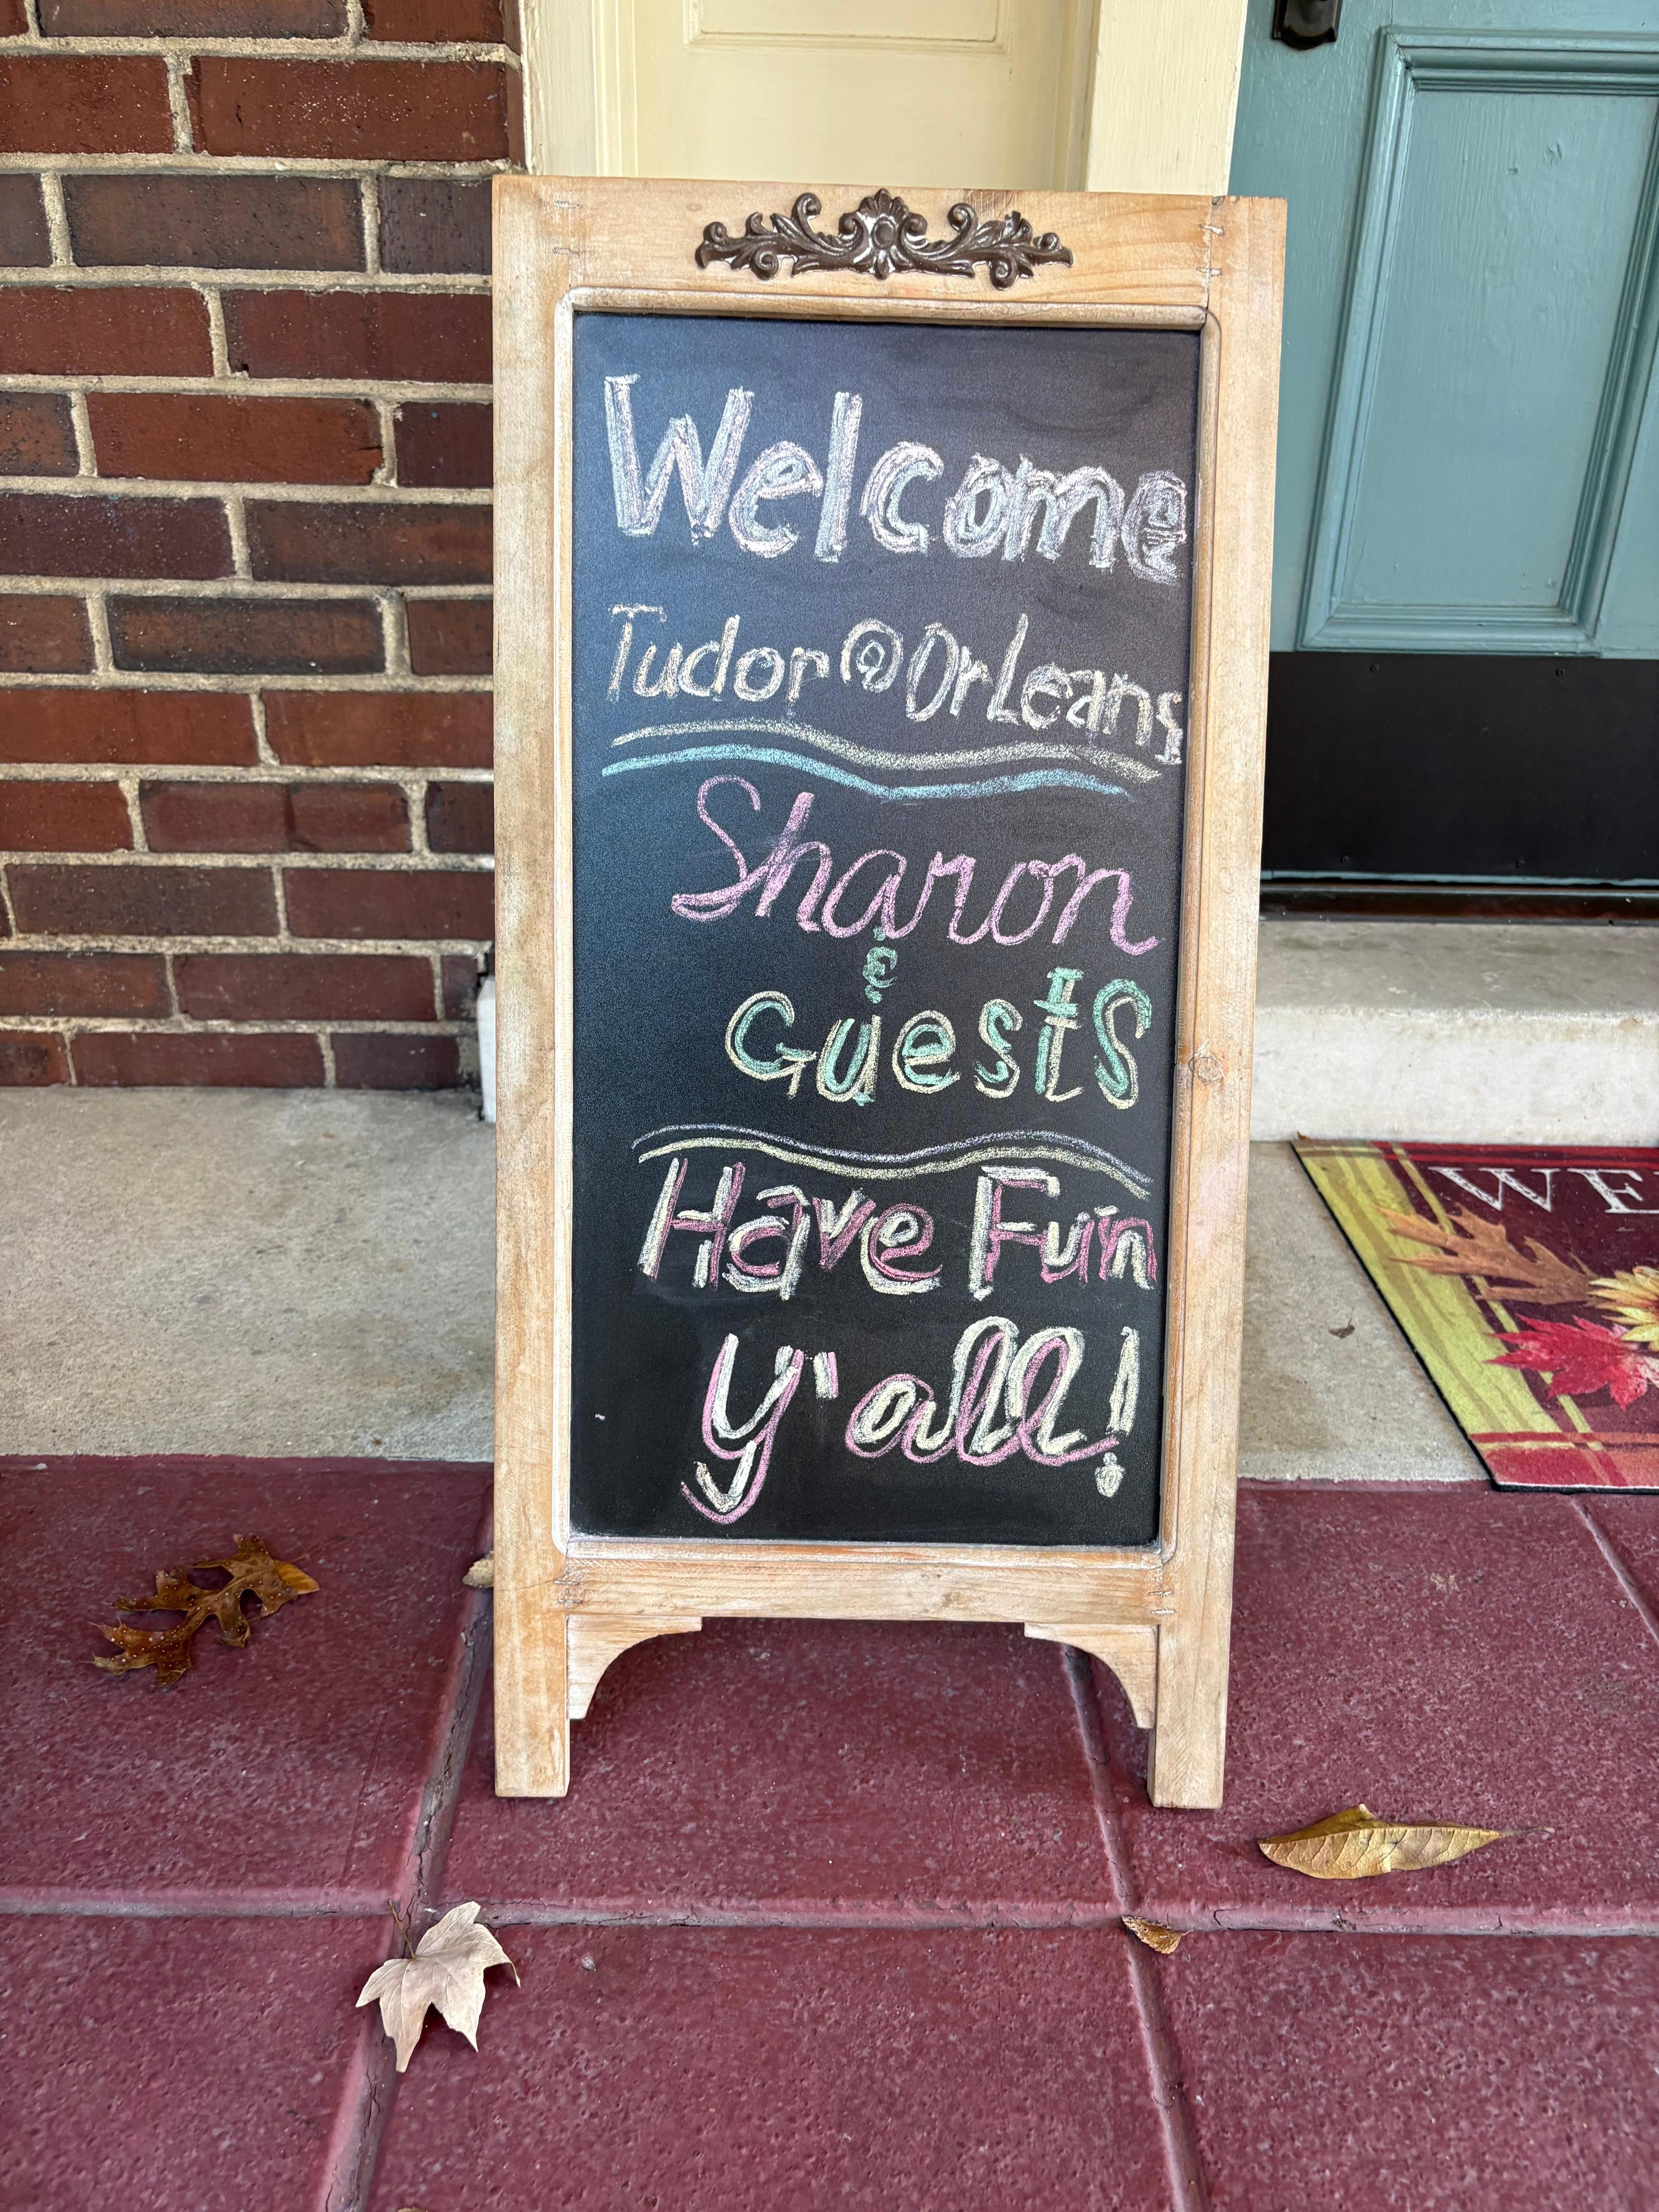 Welcome
Tudor @ Orleans
Sharon
&
Guests
Have Fun
y'all!
WE